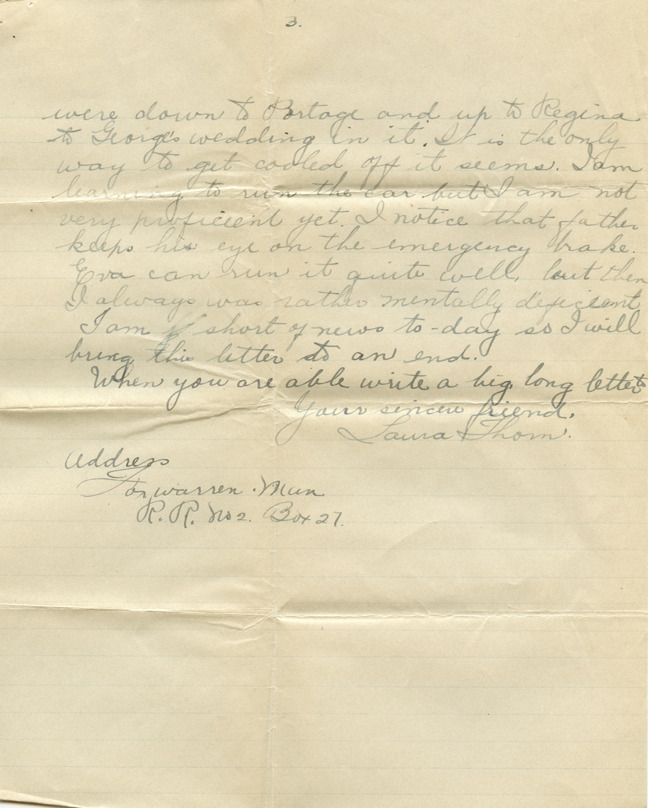 3.
were down to Portage and up to Regina
to George's wedding in it. It is the only
way to get cooled off it seems. I am
learning to run the car but I am not
very proficient yet. I notice that father
keeps his eye on the emergency brake.
Eva can run it quite well, but then
I always was rather mentally deficient
I am short of news to-day so I will
bring this letter to an end.
When you are able write a big, long letter
Your sincere friend.
Laura Thom.
Address
Foxwarren Man
R. R. No 2. Box 27.